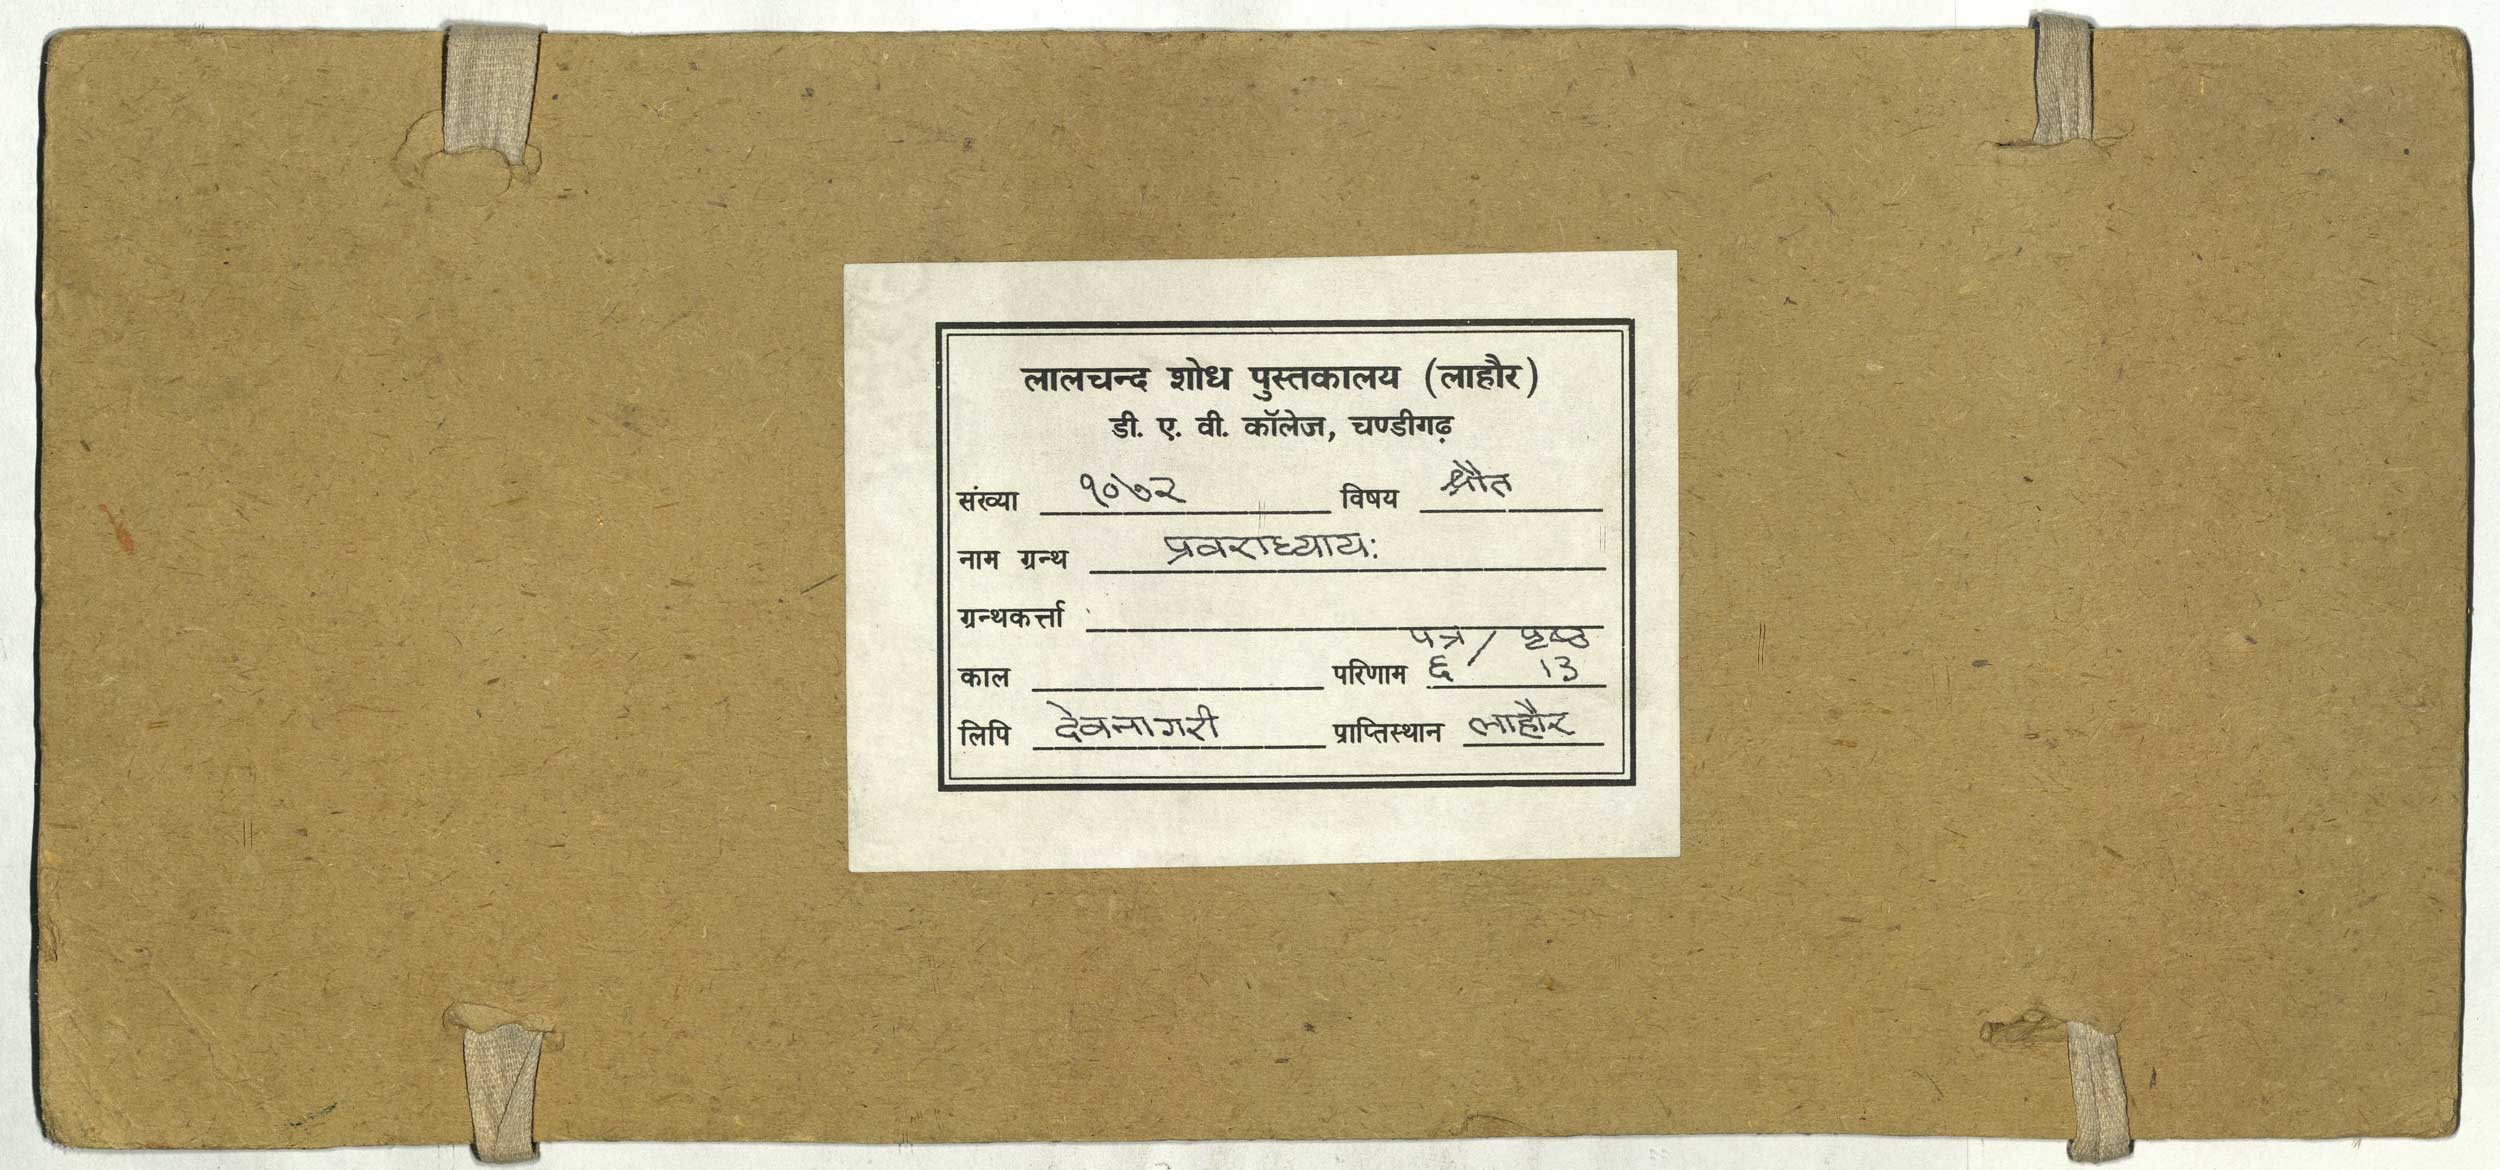 लालचन्द शोध पुस्तकालय (लाहौर)
डी. ए. वी. कॉलेज, चण्डीगढ़
संख्या १०७२ विषय श्रौत
नाम ग्रन्थ प्रवराध्याय:
ग्रन्थकर्त्ता
पत्र / पृष्ठ
काल परिणाम ६ / 13
लिपि देवनागरी प्राप्तिस्थान लाहौर